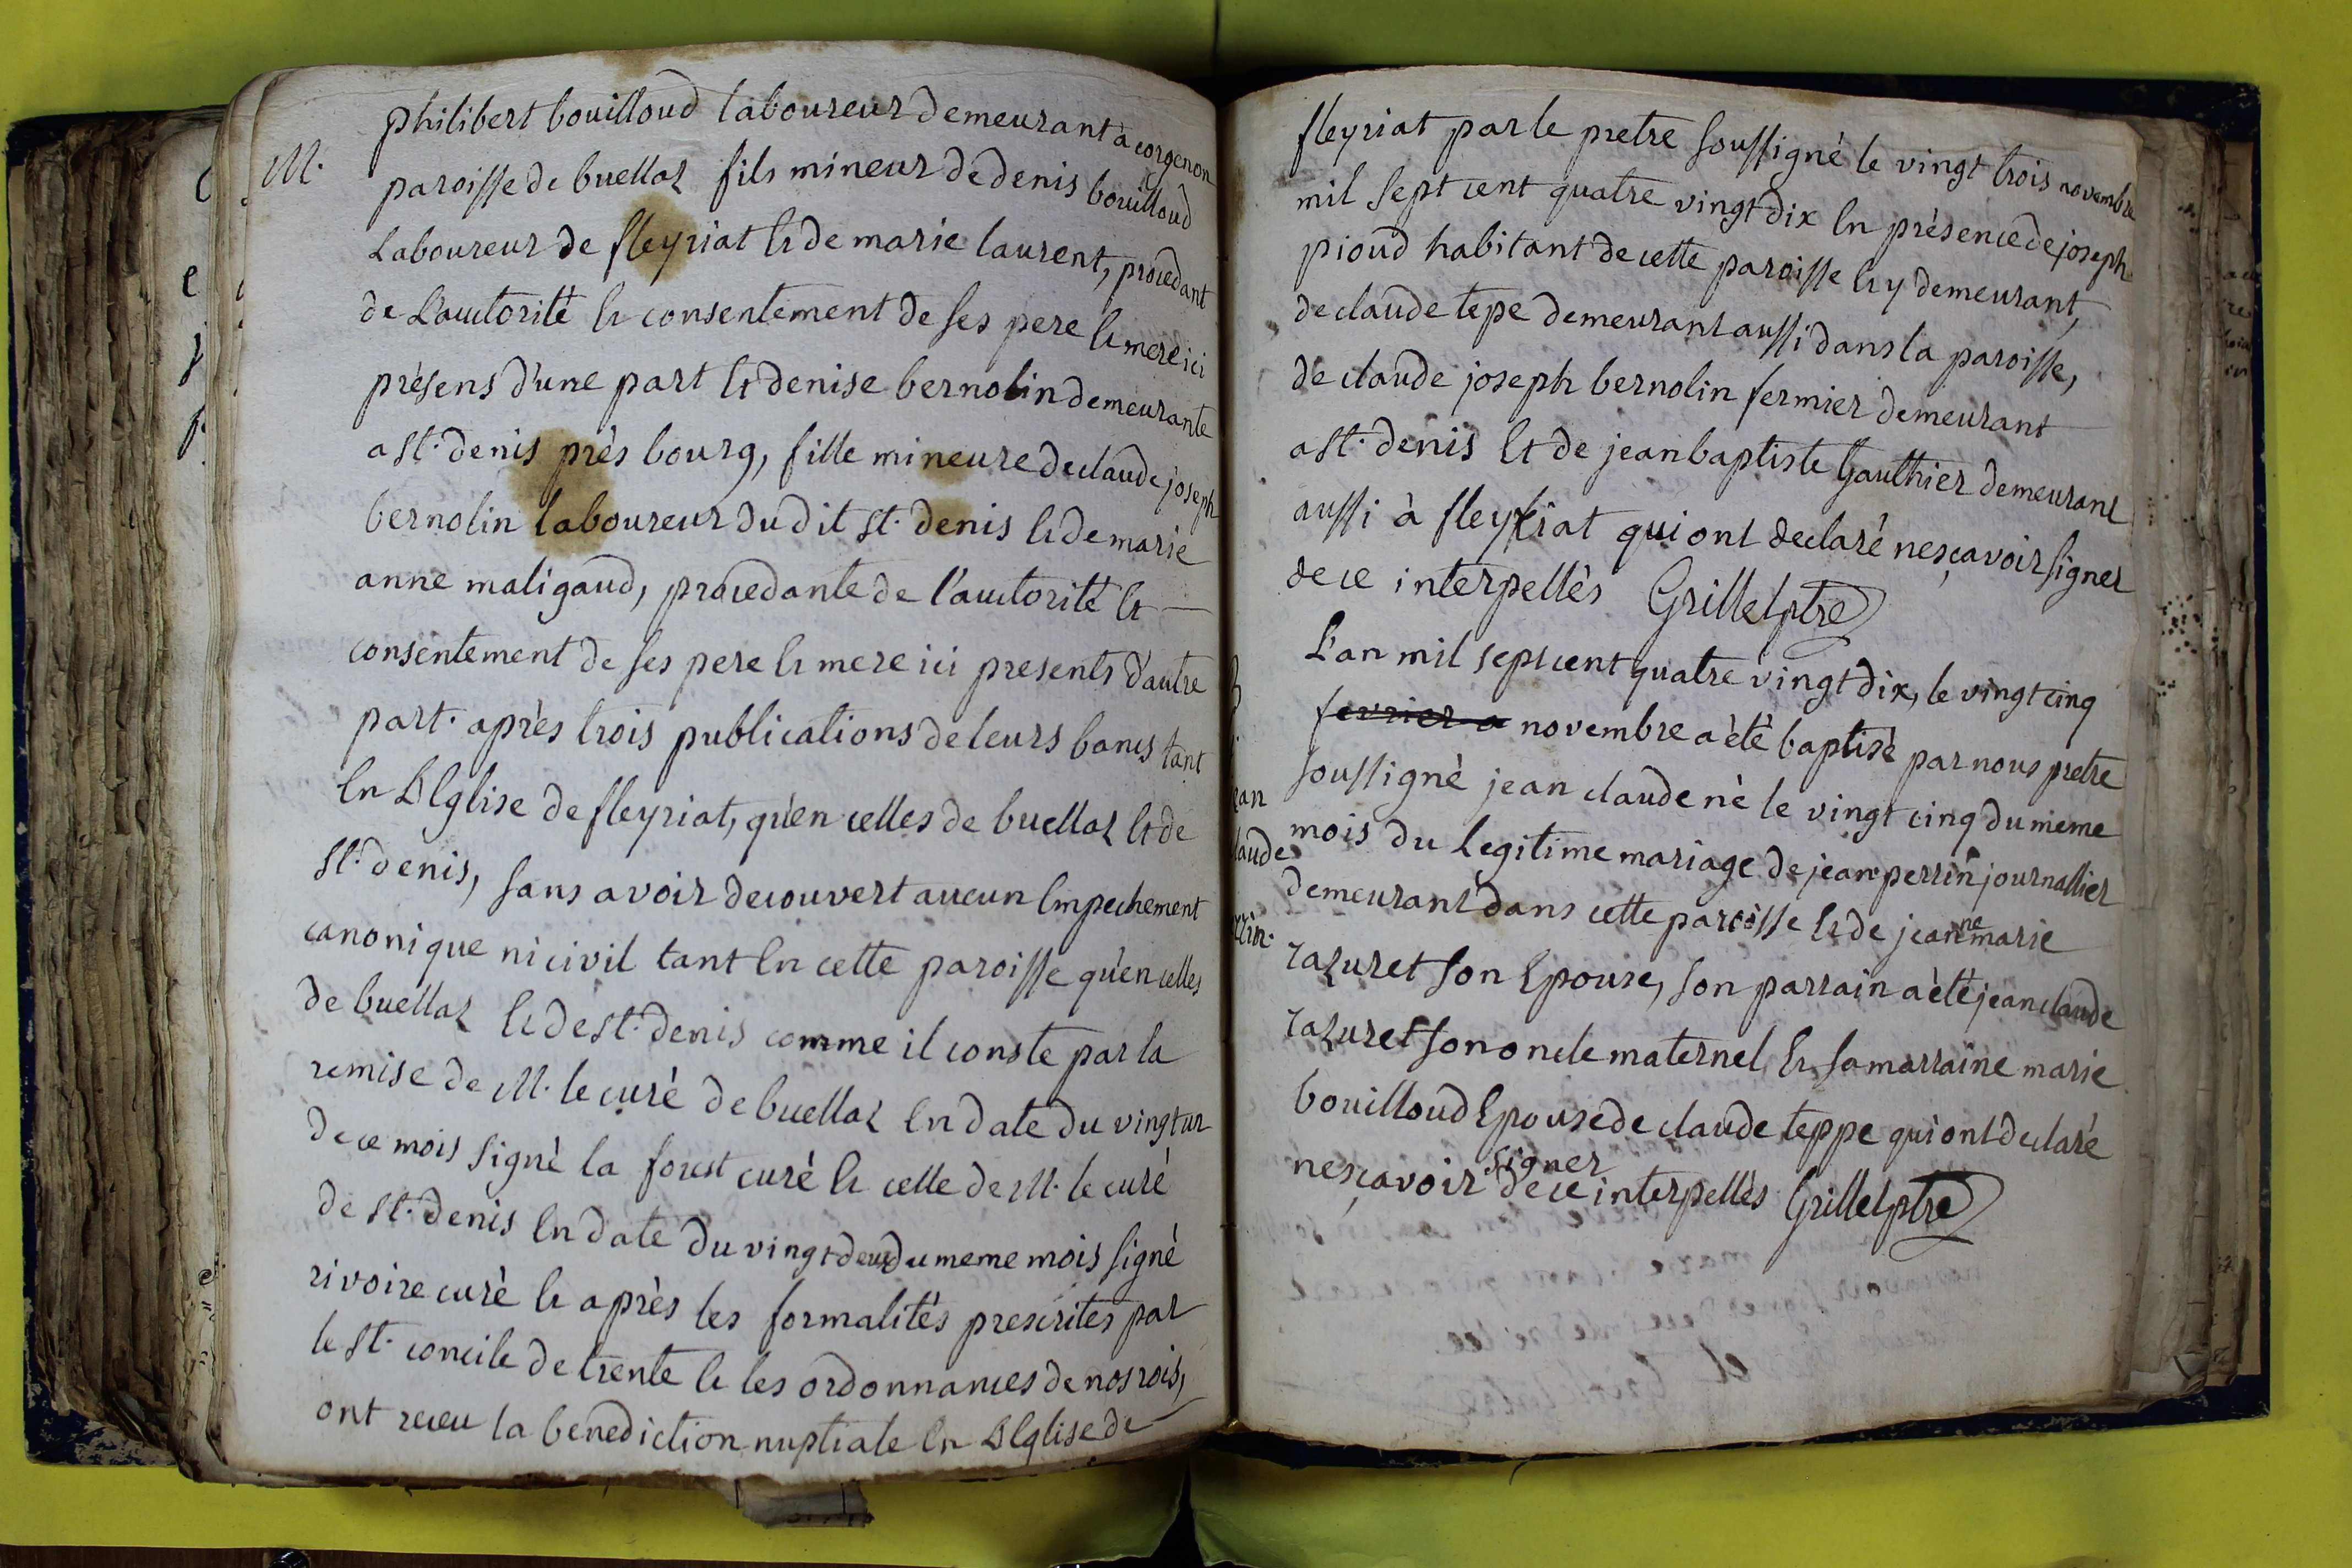 M.
philibert bouilloud laboureur demeurant à corgenon
paroisse de buellaz fils mineur de denis bouilloud
Laboureur de fleyriat et de marie laurent, procedant
de L'autorité et consentement de ses pere et mere ici
présens d'une part et denise bernolin demeurante
a st. denis près bourg, fille mineure de claude joseph
bernolin laboureur dudit st. denis et de marie
anne maligaud, procedante de l'autorité et
consentement de ses pere et mere ici presents d'autre
part. après trois publications de leurs bancs tant
en L'Eglise de fleyriat, qu'en celles de buellaz et de
st. denis, sans avoir decouvert aucun Empechement
canonique ni civil tant en cette paroisse qu'en celles
de buellaz et de st. denis comme il conste par la
remise de M. le curé de buellaz en date du vingt un
de ce mois signé la forest curé et celle de M. le curé
de st. denis en date du vingt deux du meme mois signé
rivoire curé et après les formalités prescrites par
le st. concile de trente et les ordonnances de nos rois,
ont receu la benediction nuptiale en L'Eglise de
fleyriat par le pretre soussigné le vingt trois novembre
mil sept cent quatre vingt dix en présence de joseph
pioud habitant de cette paroisse et y demeurant,
de claude tepe demeurant aussi dans la paroisse,
de claude joseph bernolin fermier demeurant
a st. denis et de jean baptiste Gauthier demeurant
aussi à fleyriat qui ont declaré nesçavoir signer
de ce interpellés Grillet ptre
L'an mil sept cent quatre vingt dix, le vingt cinq
fevrier a novembre a été baptisé par nous pretre
soussigné jean claude né le vingt cinq du meme
mois du Legitime mariage de jean perrin journallier
demeurant dans cette paroisse et de jeanne marie
razuret son Epouse, son parrain a été jean claude
razuret son oncle maternel et sa marraine marie
bouilloud Epouse de claude teppe qui ont declaré
nesçavoir signer de ce interpellés Grillet ptre